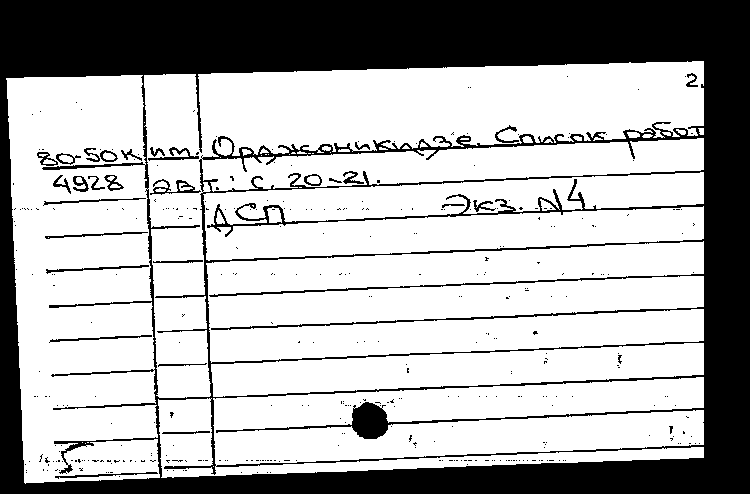 2.
80-50к им. Орджоникидзе. Список работ
4928 авт.: с. 20-21.
ДСП Экз. N4.
5